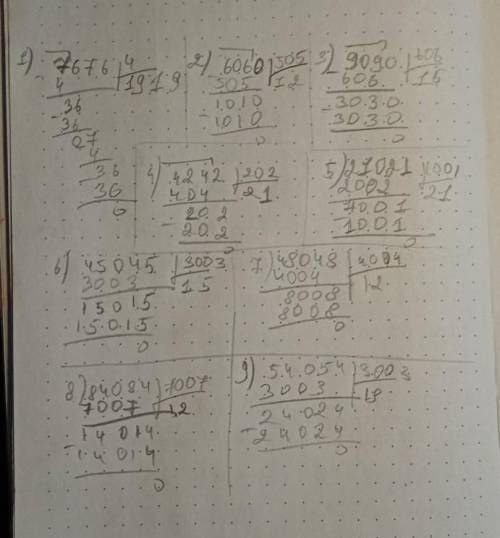 1) 7676 | 4
- 4 | 1919
- 36
36
07
4
36
36
0
2) 6060 | 505
- 505 | 12
- 1010
1010
0
3) 9090 | 606
- 606 | 15
- 3030
3030
0
4) 4242 | 202
- 404 | 21
- 202
202
0
5) 21021 | 1001
2002 | 21
1001
1001
0
6) 45045 | 3003
3003 | 15
15015
15015
0
7) 48048 | 4004
4004 | 12
8008
8008
0
8) 84084 | 7007
7007 | 12
- 14014
14014
0
9) 54054 | 3003
3003 | 18
- 24024
24024
0